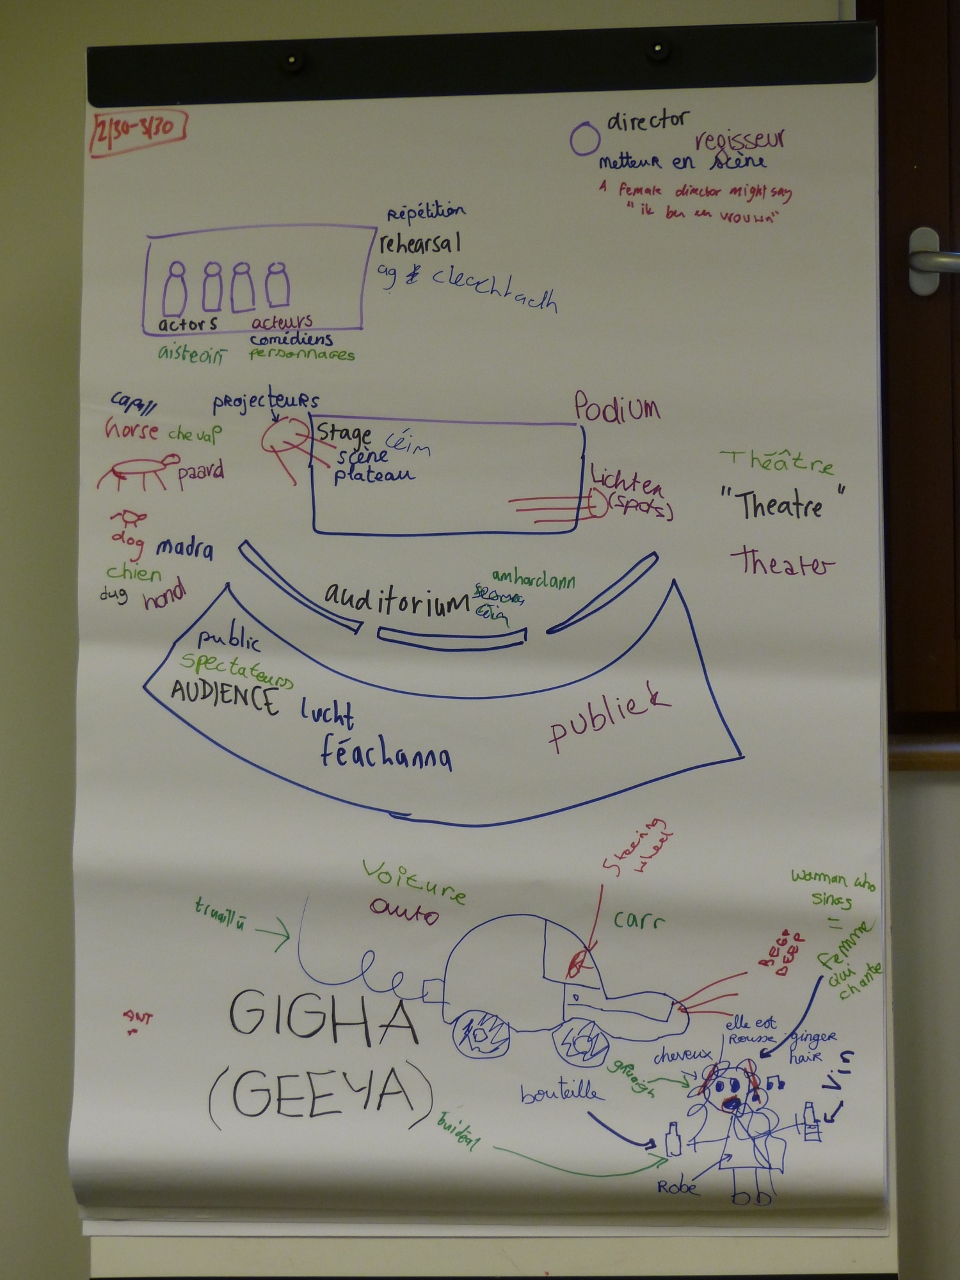 2/30-3/30
director
regisseur
metteur en scène
A female director might say
"ik ben en vrouw"
Répétition
rehearsal
ag cleachtadh
actors
acteurs
comédiens
aisteoirí
personnages
projecteurs
Podium
Stage
céim
scène
plateau
Lichten
(spots)
capall
horse
cheval
paard
dog
madra
chien
dug
hond
Théâtre
"Theatre"
theater
auditorium
amharclann
public
spectateurs
AUDIENCE
lucht
féachanna
publiek
Steering
wheel
Voiture
auto
carr
truaillú
BEEP
BEEP
woman who
sings
=
femme
qui
chante
ANT
GIGHA
(GEEYA)
elle est
Rousse
ginger
hair
cheveux
gruaigh
bouteille
Vin
buidéal
Robe